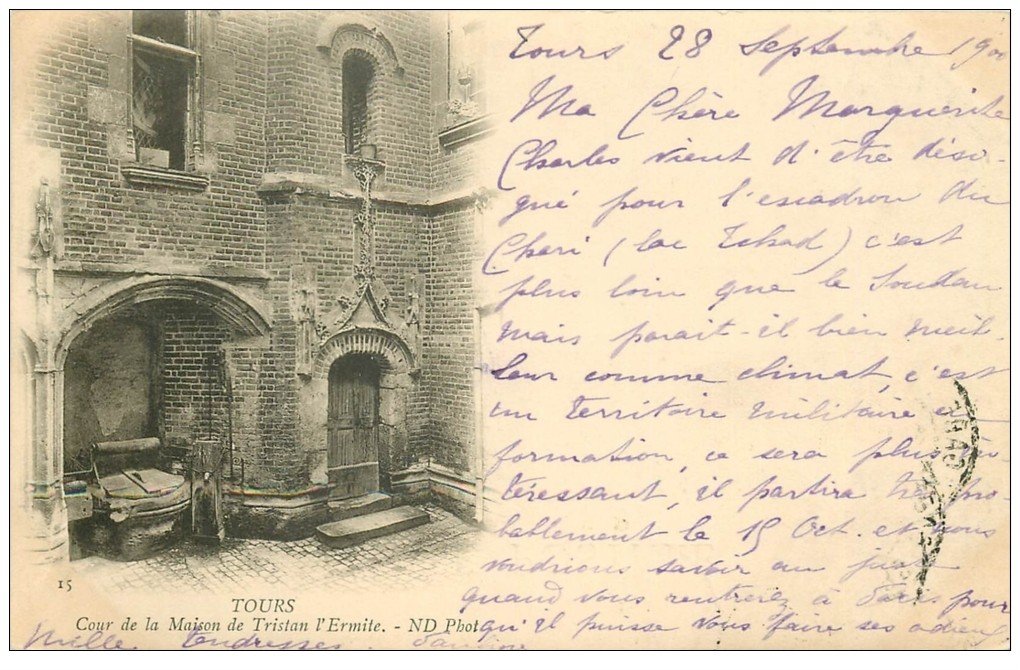 Tours 28 Septembre 1900
Ma Chère Marguerite
Charles vient d'être dési-
gné pour l'escadron du
Chari (lac Tchad) c'est
plus loin que le Soudan
mais parait-il bien meil-
leur comme climat, c'est
un territoire militaire en
formation, ce sera plus in-
téressant, il partira très pro-
bablement le 15 Oct. et nous
voudrions savoir au juste
quand vous rentrerez à Paris pour
qu'il puisse vous faire ses adieux
Mille tendresses.
15
TOURS
Cour de la Maison de Tristan l'Ermite. - ND Phot